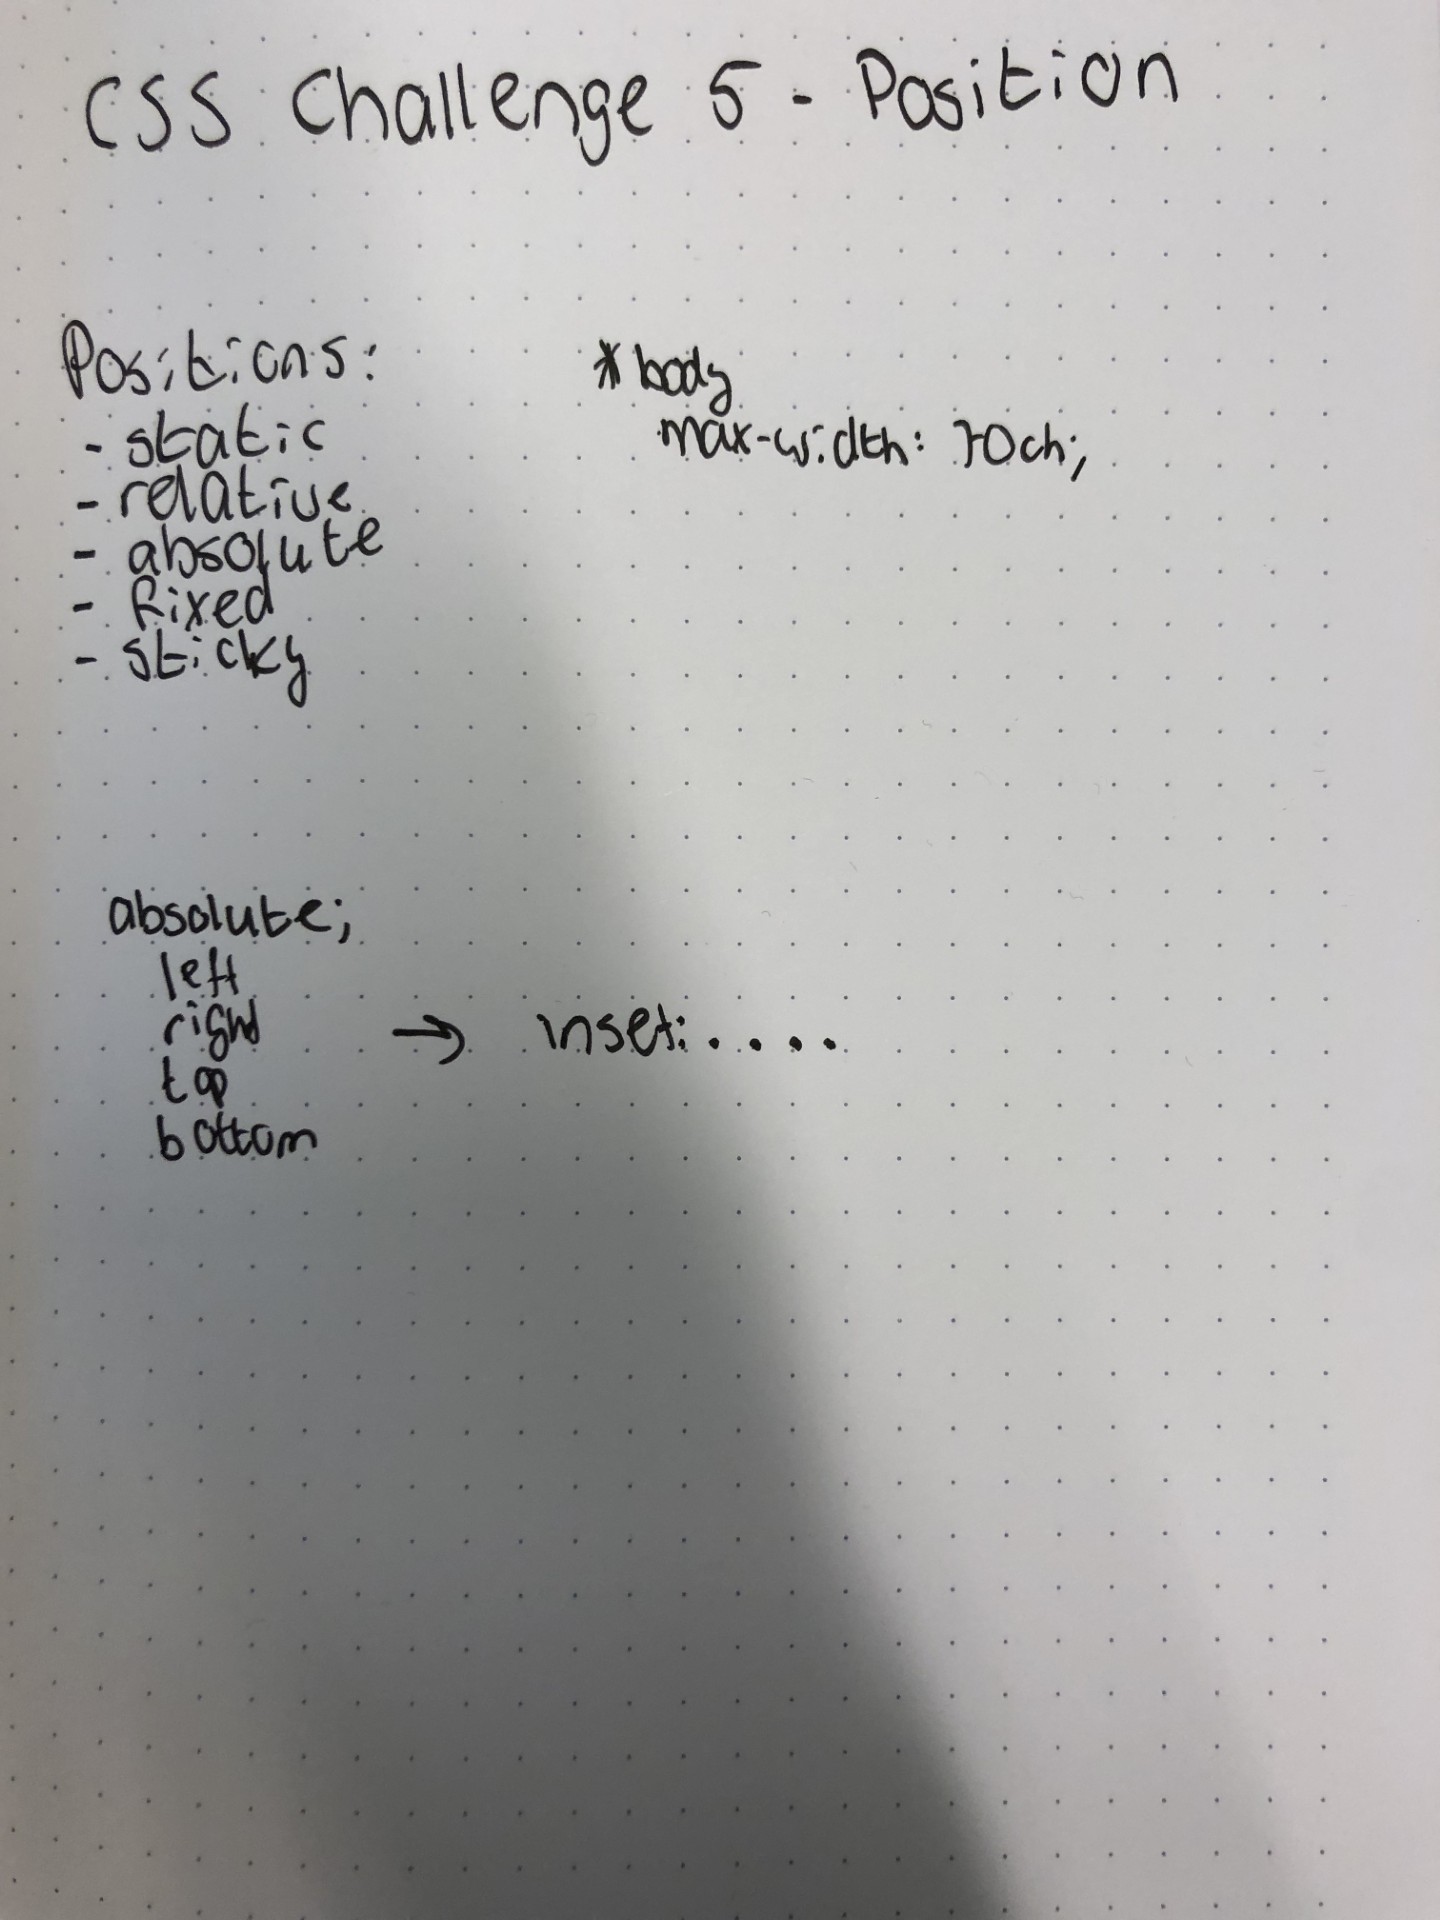 CSS Challenge 5 - Position
Positions:
- static
- relative
- absolute
- fixed
- sticky
* body
max-width: 70ch;
absolute;
left
right
top
bottom
→ inset: . . . .